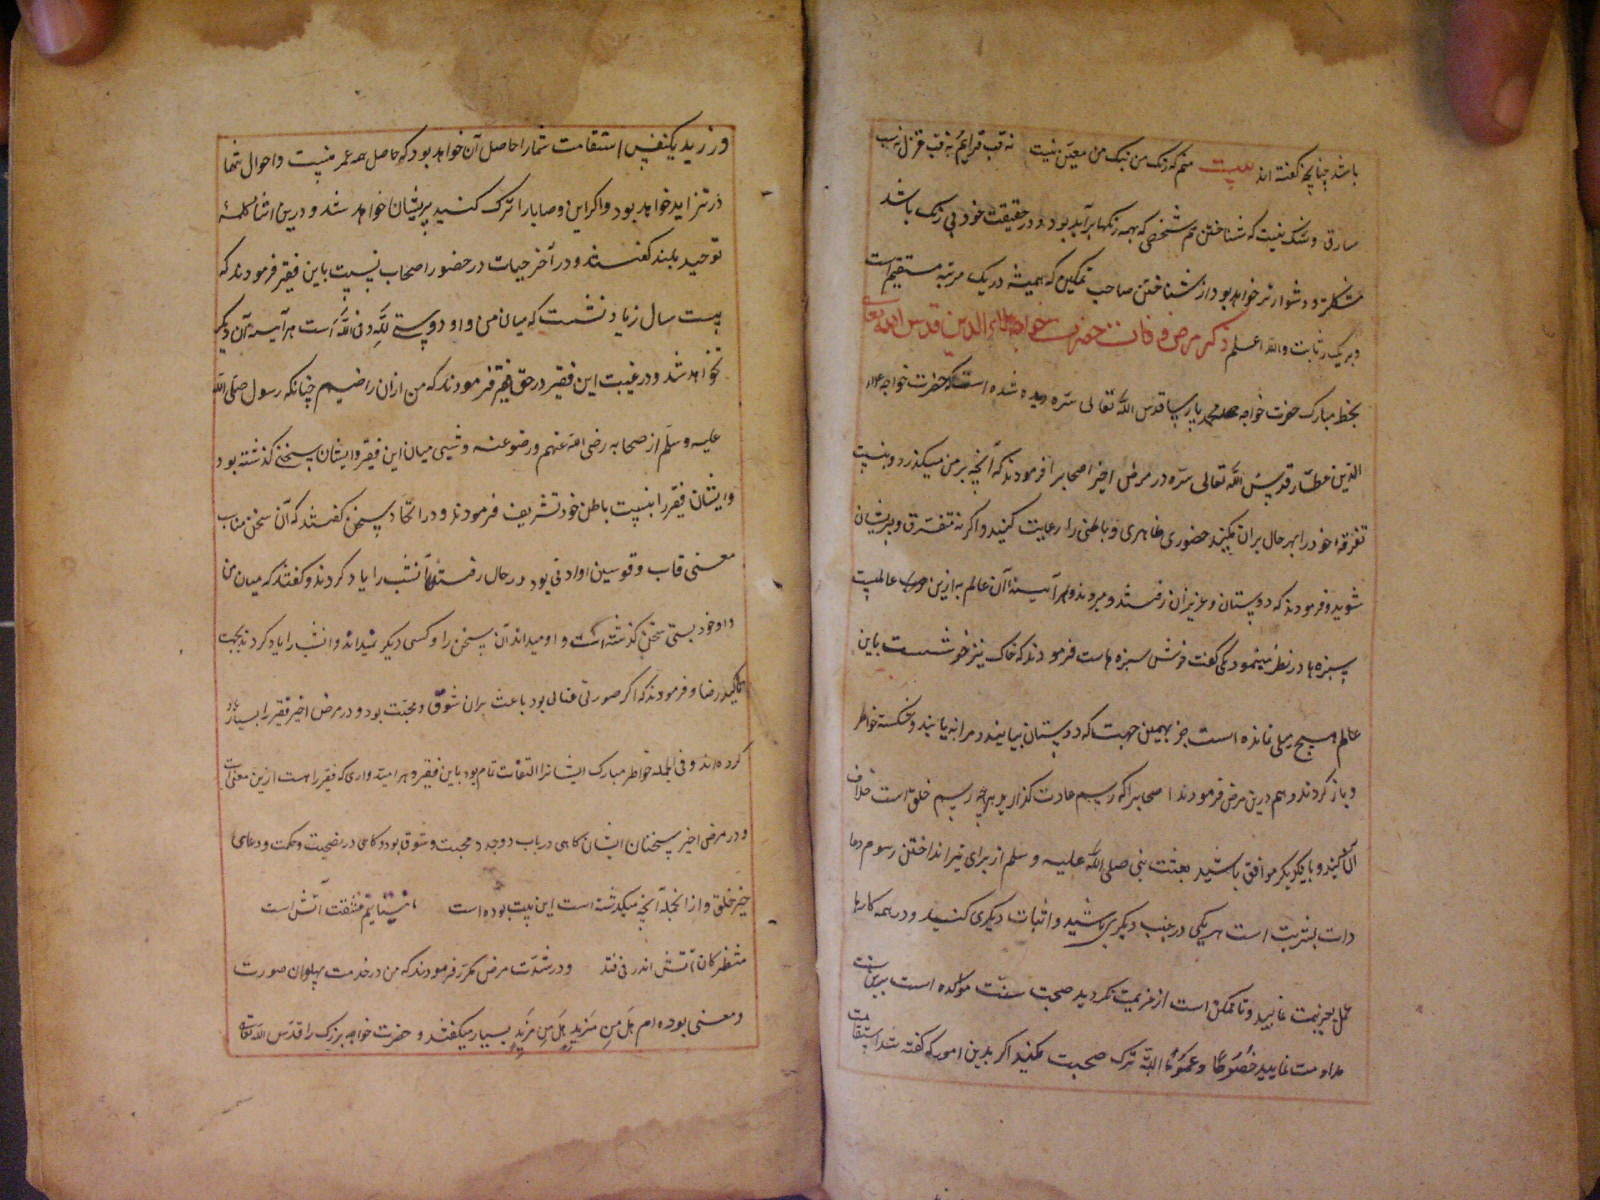 باشد چنانچه گفته اند بیت منم که رنک من نیک من معین نیست
سارق و شک نیست که شناختن هر شخصی که بهمه رنکها برآید بود و در حقیقت خود بی رنک باشد
مشکلتر و دشوارتر خواهد بود از شناختن صاحب تمکین که همیشه در یک مرتبه مستقیم است
و بریک ثابت والله اعلم ذکر مرض وفات حضرت خواجه علاء الدین قدس الله تعالی
بخط مبارک حضرت خواجه محمد پارسا قدس الله تعالی سره دیده شده است که حضرت خواجه علاء
الدین عطار قدس الله تعالی سره در مرض اخیر اصحاب را فرمودند که آنچه بر من میکذرد و بنسبت
تفرقه خود را بهر حال بران حضوری ظاهری و باطنی را رعایت کنید واکر نه متفرق و پریشان
شوید و فرمودند که دوستان و عزیزان رفتند و میروند و هر آیینه آن عالم به ازین عالمیست
سبزه ها در نظر مینمود یکی کفت خوش سبزه هاست فرمودند که خاک نیز خوش است باین
عالم هیچ میلی نمانده است جز بهمین جهت که دوستان بیایند و مرا نیابند و شکسته خاطر
و باز کردند و هم درین مرض فرمودند اصحاب را که رسم عادت کذارید هرچه رسم خلق است خلاف
آن کنید و با یکدیکر موافق باشید بعثت نبی صلی الله علیه و سلم از برای برانداختن رسوم و عا
دات بشریت است هریکی در جنب دیکری باشید و اثبات دیکری کنید و در همه کارها
عمل بعزیمت نمایید و تا ممکن است از عزیمت نکردید صحبت سنت مؤکده است برین سنت
مداومت نمایید خصوصا و عموما البته ترک صحبت مکنید اکر بدین امور که کفته شد استقامت
ورزید یکنفس استقامت شما را حاصل آن خواهد بود که حاصل همه عمر منست و احوال شما
در تزاید خواهد بود واکر این وصایا را ترک کنید پریشان خواهد شد و درین اثنا کلمهٔ
توحید بلند کفتند و در آخر حیات در حضور اصحاب نسبت باین فقیر فرمودند که
بیست سال زیادتست که میان من و او دوستی لله و فی الله است هر آینه آن دیکر
نخواهد شد و در غیبت این فقیر در حق فقیر فرمودند که من ازان راضیم چنانکه رسول صلی الله
علیه و سلم از صحابه رضی الله عنهم و رضوا عنه و شبی میان این فقیر و ایشان سخنی کذشته بود
و ایشان فقیر را بنسبت باطن خود تشریف فرمودند و در اتحاد سخن کفتند که آن سخن مناسب
معنی قاب قوسین او ادنی بود در حال رفتن آنشب را یاد کردند و کفتند که میان من
و او خود بستی سخن کذشته است و او میداند آن سخن را و کسی دیکر نمیداند و آنشب را یاد کردند بجهت
تاکید رضا و فرمودند که اکر صورتی عتابی بود باعث بران شوق و محبت بود و در مرض اخیر فقیر را بسیار یاد
کرده اند و فی الجمله خاطر مبارک ایشان را التفات تمام بود باین فقیر و هر امیدواری که فقیر را هست ازین معنی است
و در مرض اخیر سخنان ایشان کاهی در باب وجد و محبت و شوق بود و کاهی در نصیحت و حکمت و دعای
خیر خلق و از انجمله آنچه میکذشته است این بیت بوده است عشقت آتش است
منتظر کان آتش اندر نی فتد و در شدت مرض مکرر فرمودند که من در خدمت پهلوان صورت
و معنی بوده ام هل من مزید هل من مزید بسیار میکفتند و حضرت خواجه بزرک را قدس الله تعالی